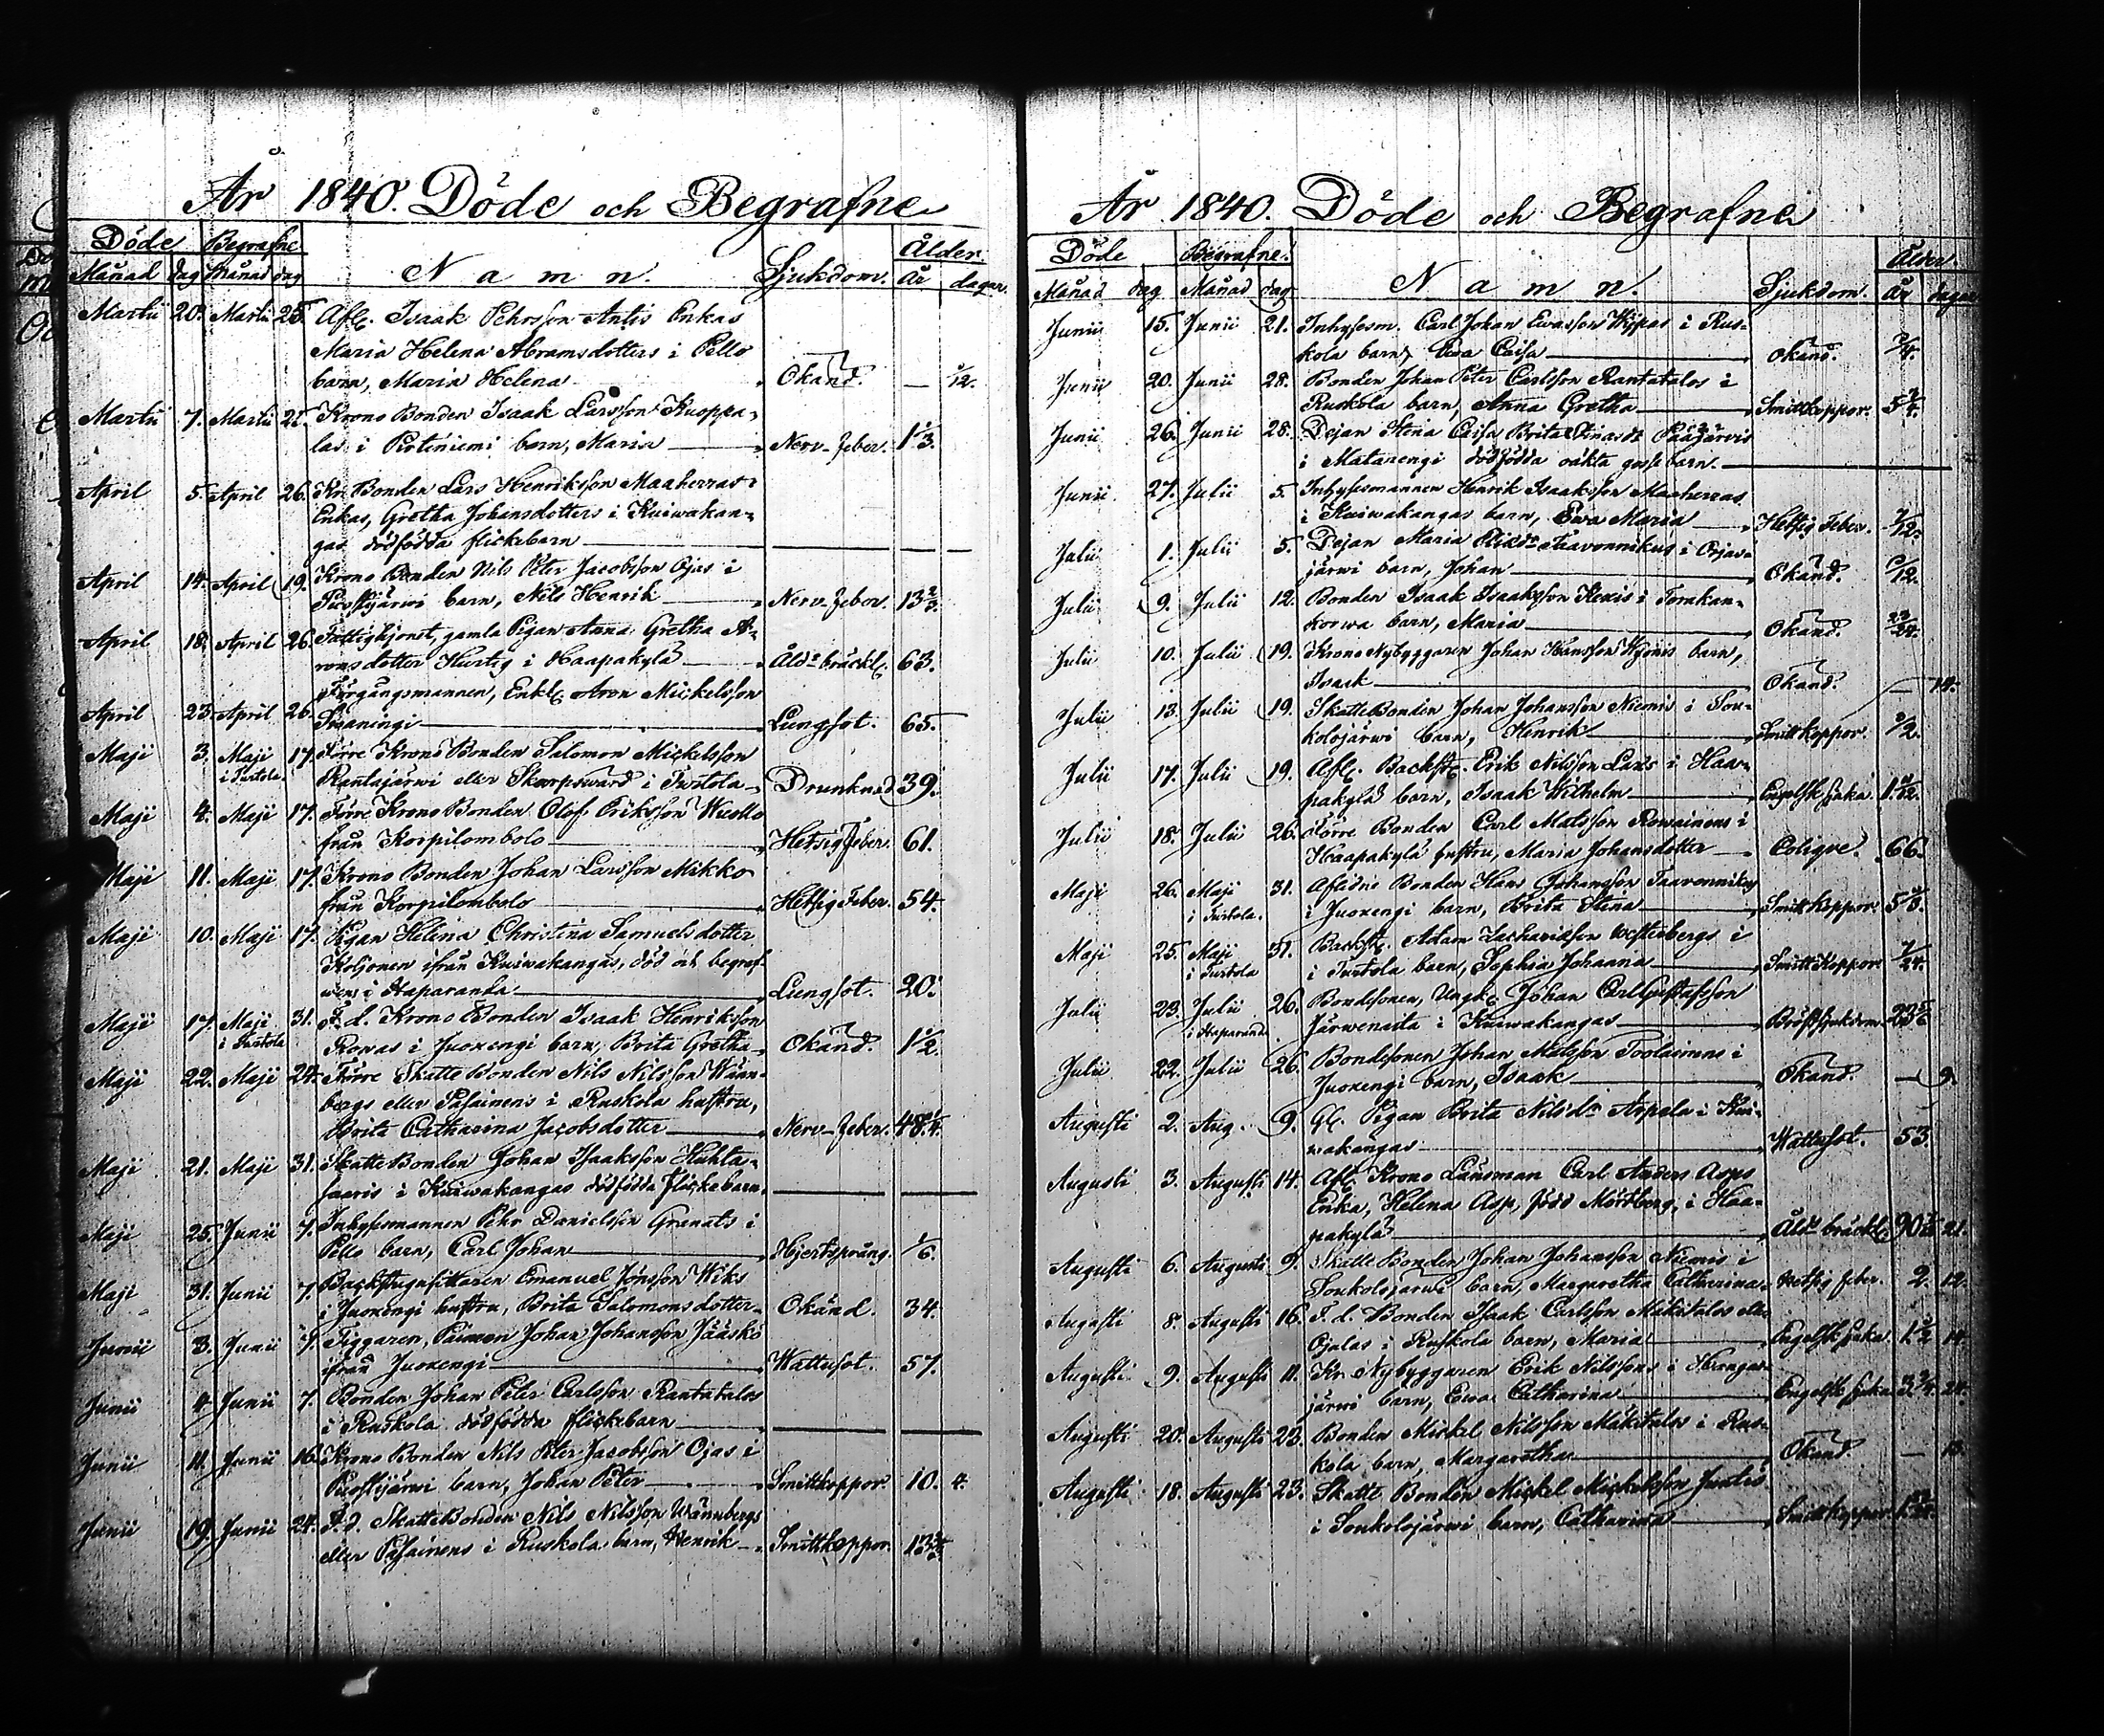 År 1840. Döde och Begrafne
Döde Begrafne Namn. Sjukdom. Ålder.
Månad dag Månad dag År dagar.
Martii 20. Martii 25. Afl. Isaak Pehrsson Antis Enkas
Maria Helena Abramsdotters i Pello
barn, Maria Helena Okänd. — 1/12.
Martii 7. Martii 27. Krono Bonden Isaak Larsson Kuoppa-
las i Rotiniemi barn, Maria Nerv-feber. 1 1/3.
April 5. April 26. Kr. Bonden Lars Henriksson Maaherras
Enkas, Gretha Johansdotters i Kuiwakan-
gas dödfödda flickebarn
April 14. April 19. Krono Bonden Nils Peter Jacobsson Ojas i
Puostijärwi barn, Nils Henrik Nerv-feber. 13 2/3.
April 18. April 26. Fattighjonet, gamla Pigan Anna Gretha A-
ronsdotter Hurtig i Haapakylä Åld. bräckl. 63.
Förgångsmannen, Enkl. Aron Mickelsson
April 23. April 26. Lungsot. 65.
Maji 3. Maji 17. Förre Krono Bonden Salomon Mickelsson
i Turtola. Rantajärwi eller Skarpswärd i Turtola Drunknad 39.
Maji 4. Maji 17. Förre Krono Bonden Olof Eriksson
från Korpilombolo Hetsig feber. 61.
Maji 11. Maji 17. Krono Bonden Johan Larsson Mikko
från Korpilombolo Hetsig Feber. 54.
Maji 10. Maji 17. Pigan Helena Christina Samuelsdotter
Koljonen ifrån Kuiwakangas, död och begraf-
wen i Haparanda Lungsot. 20.
Maji 17. Maji 31. F. d. Krono Bonden Isaak Henriksson
i Turtola Rowas i Juoxengi barn, Brita Gretha Okänd. 1 1/2.
Maji 22. Maji 24. Förre Skatte Bonden Nils Nilsson Wän-
bergs eller Pasainens i Ruskola hustru,
Brita Catharina Jacobsdotter Nerv-feber. 48 1/4.
Maji 21. Maji 31. Skatte Bonden Johan Isaaksson Huhta-
saaris i Kuiwakangas dödfödda flickebarn.
Maji 25. Junii 7. Inhysesmannen Pehr Danielsson Granats i
Pello barn, Carl Johan Hjertsprång. 1/6.
Maji 31. Junii 7. Backstugusittaren Emanuel Jönsson Wiks
i Juoxengi hustru, Brita Salomonsdotter Okänd. 34.
Junii 3. Junii 7. Tiggaren, Johan Johansson Jääskö
ifrån Juoxengi Wattusot. 57.
Junii 4. Junii 7. Bonden Johan Peter Carlsson Rantatalos
i Ruskola dödfödda flickebarn
Junii 11. Junii 16. Krono Bonden Nils Peter Jacobsson Ojas i
Puostijärwi barn, Johan Peter Smittkoppor. 10. 4.
Junii 19. Junii 24. F. d. Skatte Bonden Nils Nilsson Wännbergs
eller Pasainens i Ruskola barn, Henrik Smittkoppor. 13
År 1840. Döde och Begrafne
Döde Begrafne. Namn. Sjukdom. Ålder
Månad dag Månad dag År dagar
Junii 15. Junii 21. Inhysesm. Carl Johan Ewasson Wippas i Rus-
kola barn, Ewa Caisa Okänd. 3/4.
Junii 20. Junii 28. Bonden Johan Peter Carlsson Rantatalos i
Ruskola barn, Anna Gretha Smittkoppor. 5 1/4.
Junii 26. Junii 28. Dejan Stena Caisa Brita Pääjärvis
i Matarengi dödfödda oäkta gosse barn.
Junii 27. Julii 5. Inhysesmannen Henrik Isaaksson Maaherras
i Kuiwakangas barn, Ewa Maria Hetsig Feber. 7/12.
Julii 1. Julii 5. Dejan Maria Taavonnikus i Orjas-
järwi barn, Johan Okänd.
Julii 9. Julii 12. Bonden Isaak Isaaksson Kexis i Tornkan-
korwa barn, Maria Okänd. 23/24.
Julii 10. Julii 19. Krono Nybyggaren Johan Hansson barn,
Isaak Okänd. — 14.
Julii 13. Julii 19. Skatte Bonden Johan Johansson Niemis i Sou-
kolojärwi barn, Henrik Smittkoppor. 1/2.
Julii 17. Julii 19. Afl. Backst. Erik Nilsson Lars i Haa-
pakylä barn, Isaak Wilhelm Engelsk sjuka.
Julii 18. Julii 26. Förre Bonden Carl Matsson Rowainens i
Haapakylä hustru, Maria Johansdotter Colique. 66.
Maji 26. Maji 31. Aflidne Bonden Hans Johansson Taavonnikus
i Turtola. i Juoxengi barn, Brita Stina Smittkoppor.
Maji 25. Maji 31. Backst. Adam Zachariasson Westerbergs i
i Turtola i Turtola barn, Sophia Johanna Smittkoppor. 7/24.
Julii 23. Julii 26. Bondesonen, Ungk. Johan Carl Gustafsson
i Haparanda Järwenaita i Kuiwakangas Bröstsjukdom. 23
Julii 22. Julii 26. Bondesonen Johan Matsson Toolainens i
Juoxengi barn, Isaak Okänd. — 9.
Augusti 2. Aug. 9. Gl. Pigan Brita Nilsdr Arpela i Kui-
wakangas Wattusot. 53.
Augusti 3. Augusti 14. Afl. Krono Länsman Carl Anders Asps
Enka, Helena Asp, född Mörtberg, i Haa-
pakylä Åldr. bräckl. 90 21.
Augusti 6. Augusti 9. Skatte Bonden Johan Johansson Niemis i
Soukolojärwi barn, Margaretha Catharina Hetsig feber. 2. 12.
Augusti 8. Augusti 16. F. d. Bonden Isaak Carlsson Mäkitalos eller
Ojalas i Ruskola barn, Maria Engelsk sjuka. 1 1/2 14.
Augusti 9. Augusti 11. Kr. Nybyggaren Erik Nilssons i Kangas-
järwi barn, Ewa Catharina Engelsk sjuka 24.
Augusti 20. Augusti 23. Bonden Mickel Nilsson Mäkitalos i Rus-
kola barn, Margaretha Okänd. —
Augusti 18. Augusti 23. Skatte Bonden Mickel Mickelsson Juntis
i Soukolojärwi barn, Catharina Smittkoppor.